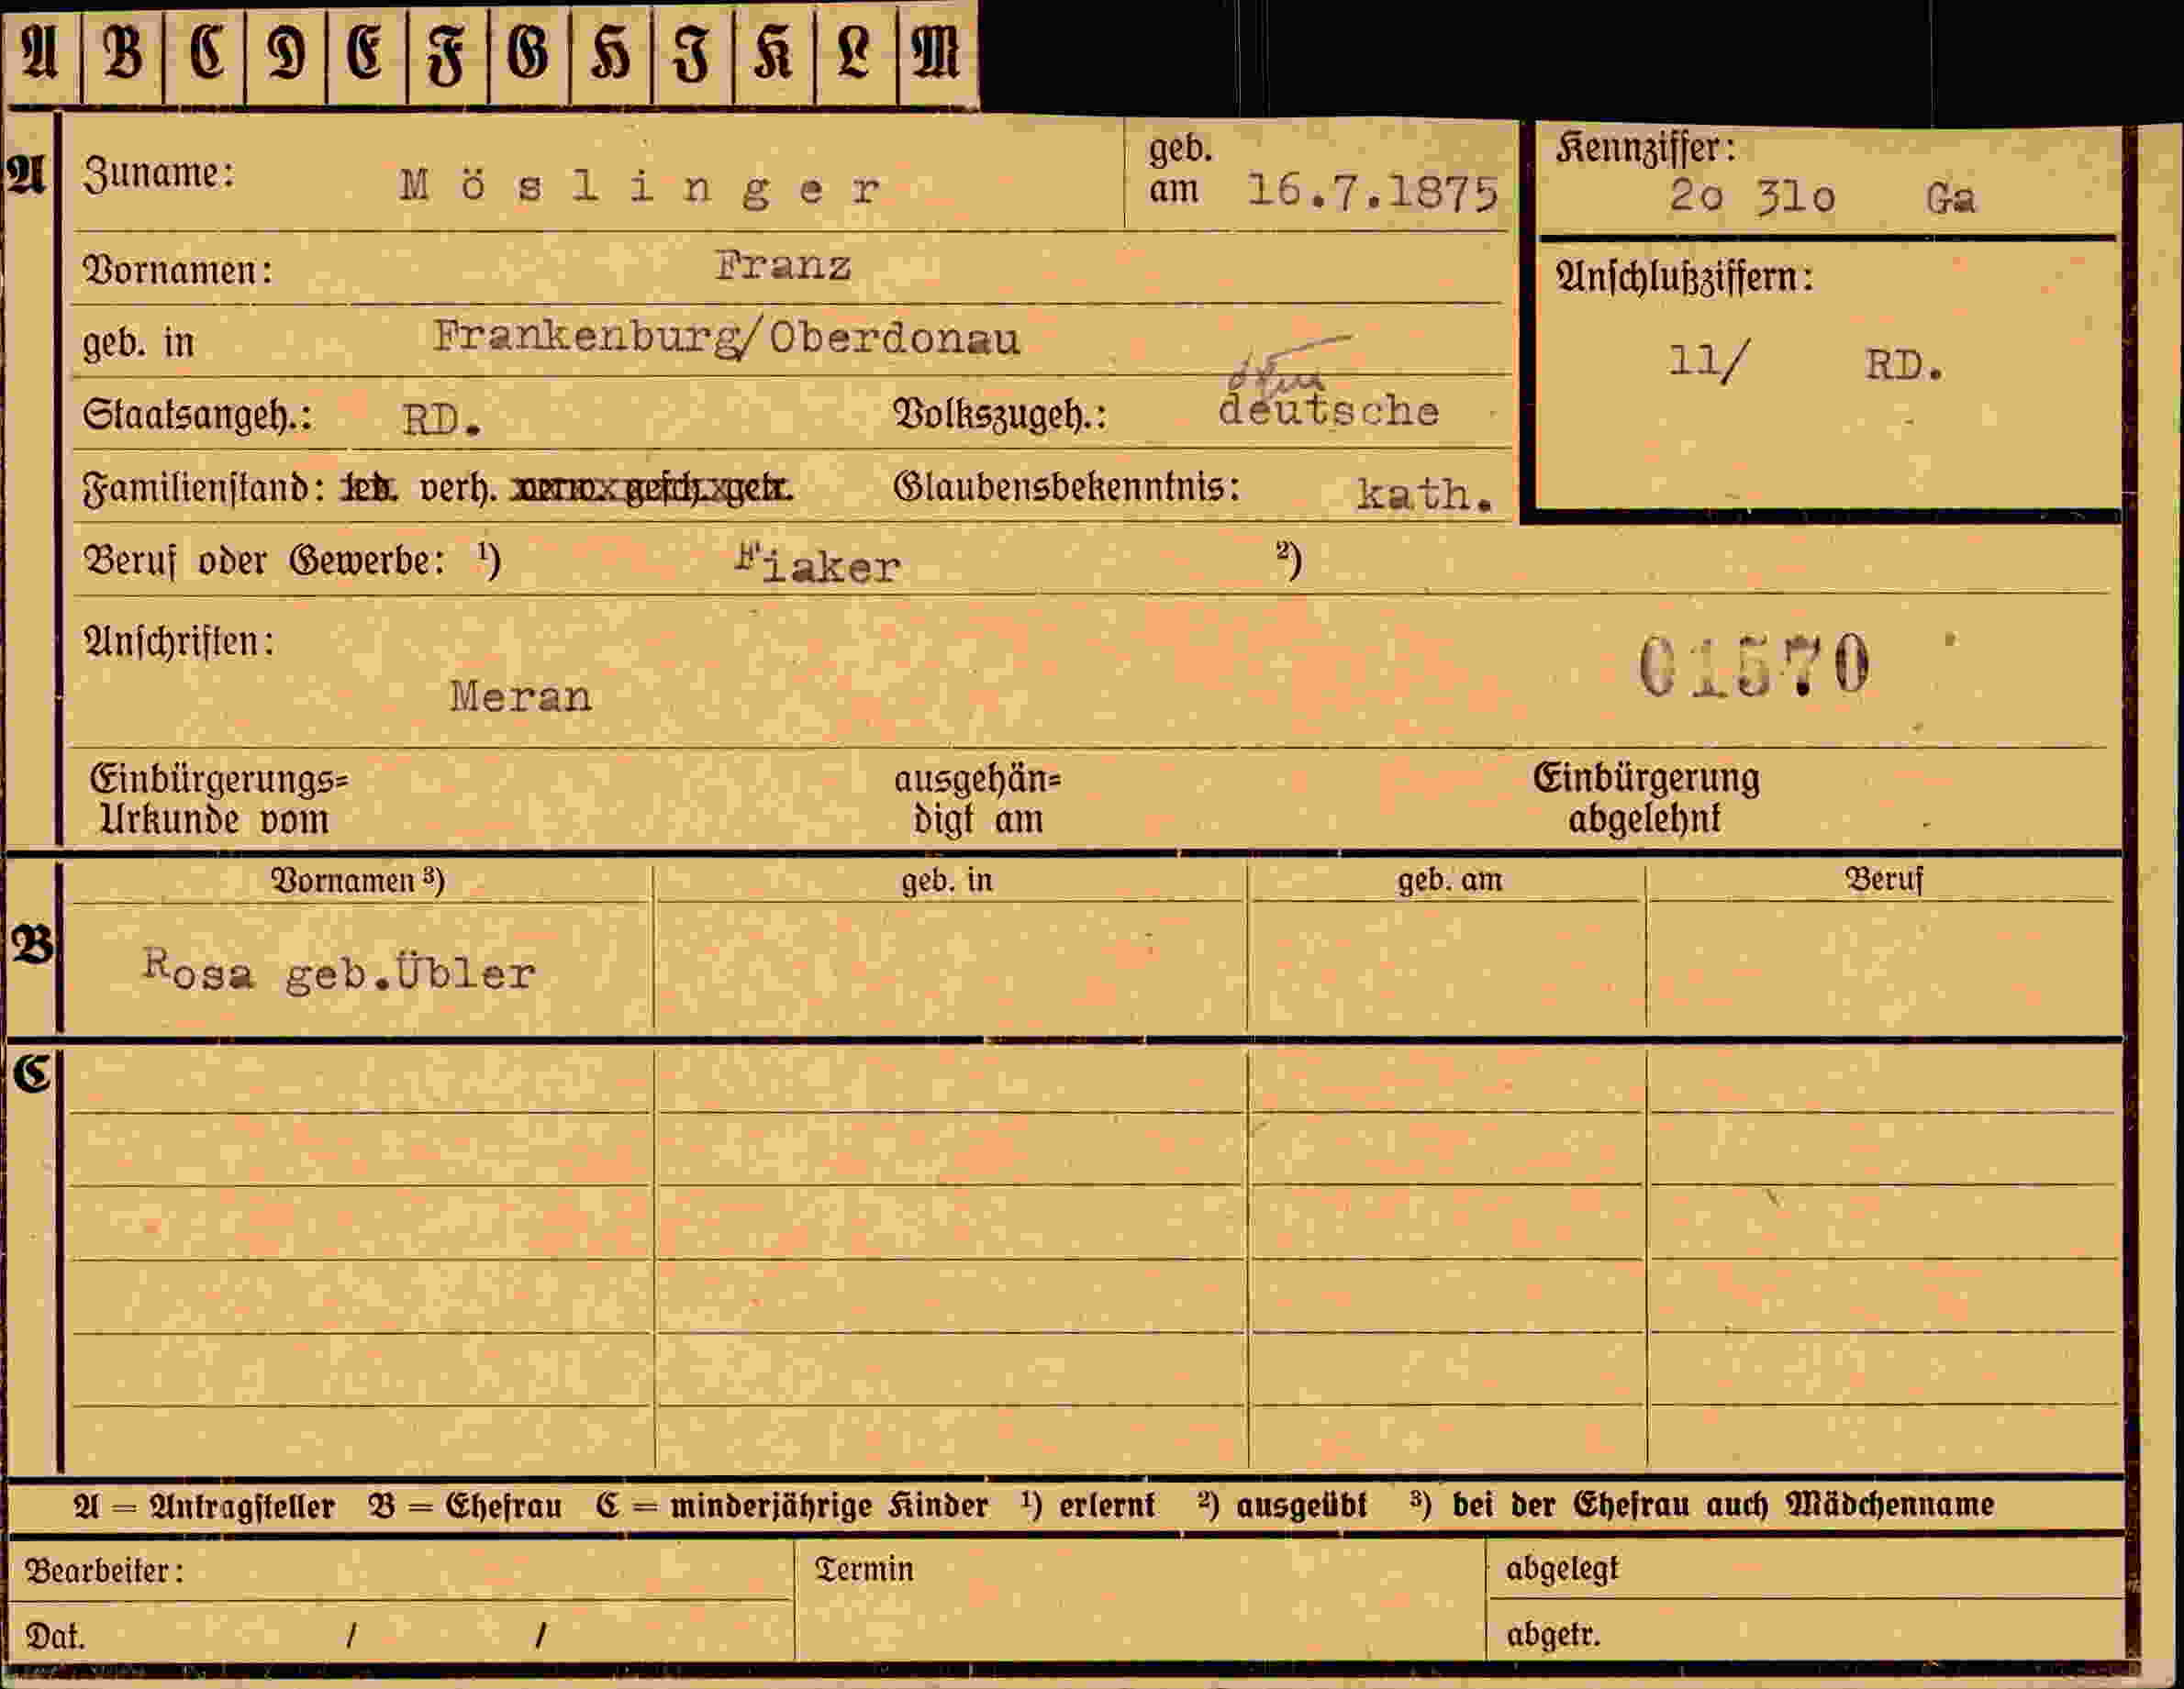 A B C D E F G H I K L M
A Zuname: Möslinger geb. am 16.7.1875 Kennziffer: 2o 31o Ga
Vornamen: Franz
geb. in Frankenburg/Oberdonau Anschlußziffern: 11/ RD.
Staatsangeh.: RD. Volkszugeh.: deutsche
Familienstand: led. verh. verw. gesch. getr. Glaubensbekenntnis: kath.
Beruf oder Gewerbe: ¹) Fiaker ²)
Anschriften:
Meran 01570
Einbürgerungs= ausgehän= Einbürgerung
Urkunde vom digt am abgelehnt
Vornamen ³) geb. in geb. am Beruf
B Rosa geb.Übler
C
A = Antragsteller B = Ehefrau C = minderjährige Kinder ¹) erlernt ²) ausgeübt ³) bei der Ehefrau auch Mädchenname
Bearbeiter: Termin abgelegt
Dat. / / abgetr.